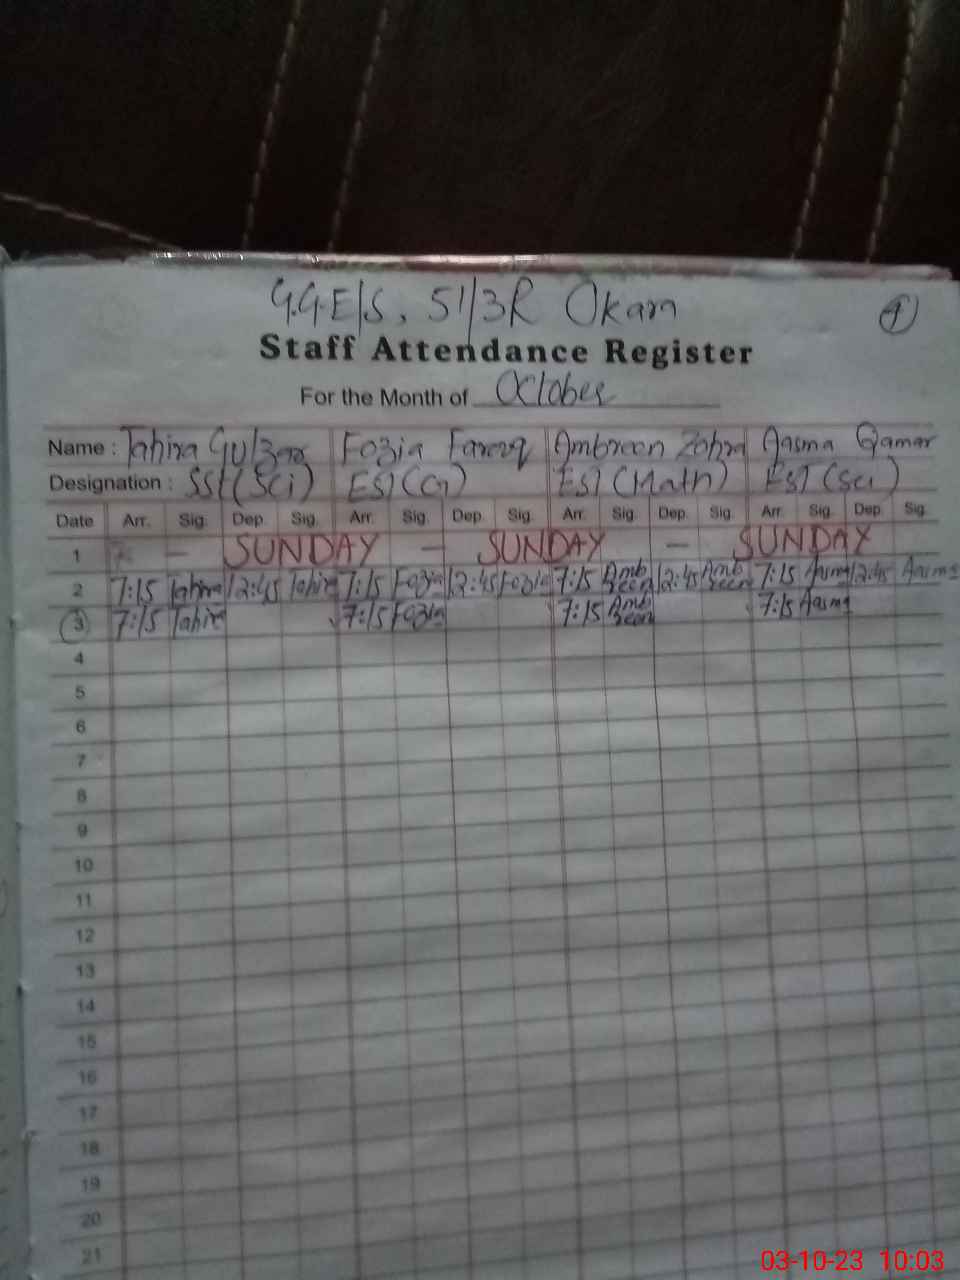 G.G.E/S. 51/3R Okara
4
Staff Attendance Register
For the Month of October
Name : Tahira Gulzar Fozia Farooq Ambreen Zohra Aasma Qamar
Designation : SST(Sci) EST( ) EST(Math) EST(Sci)
Date Arr. Sig. Dep. Sig. Arr. Sig. Dep. Sig. Arr. Sig. Dep. Sig. Arr. Sig. Dep. Sig.
1 — SUNDAY — SUNDAY — SUNDAY
2 7:15 Tahira 12:45 Tahira 7:15 Fozia 12:45 Fozia 7:15 Ambreen 12:45 Ambreen 7:15 Aasma 12:45 Aasma
3 7:15 Tahira 7:15 Fozia 7:15 Ambreen 7:15 Aasma
4
5
6
7
8
9
10
11
12
13
14
15
16
17
18
19
20
21
03-10-23 10:03